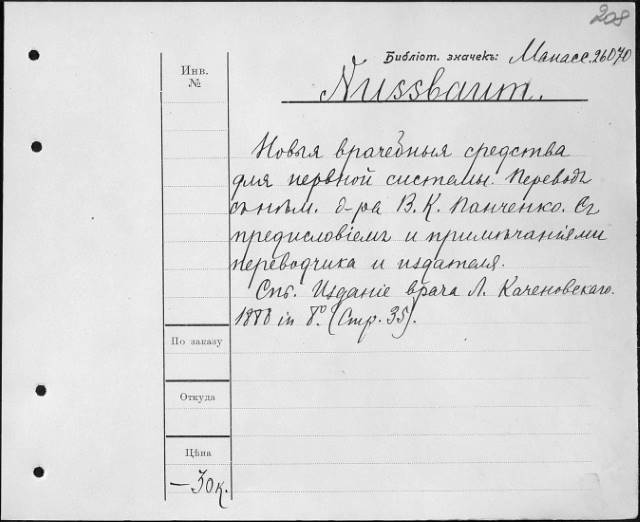 208
Библіот. значекъ: Манасс. 26070
Инв.
№
Nussbaum.
Новыя врачебныя средства
для нервной системы. Переводъ
съ нѣм. д-ра В. К. Панченко. Съ
предисловіемъ и примѣчаніями
переводчика и издателя.
Спб. Изданіе врача Л. Каченовскаго.
1888 in 8°. (Стр. 35).
По заказу
Откуда
Цѣна
— 30 к.